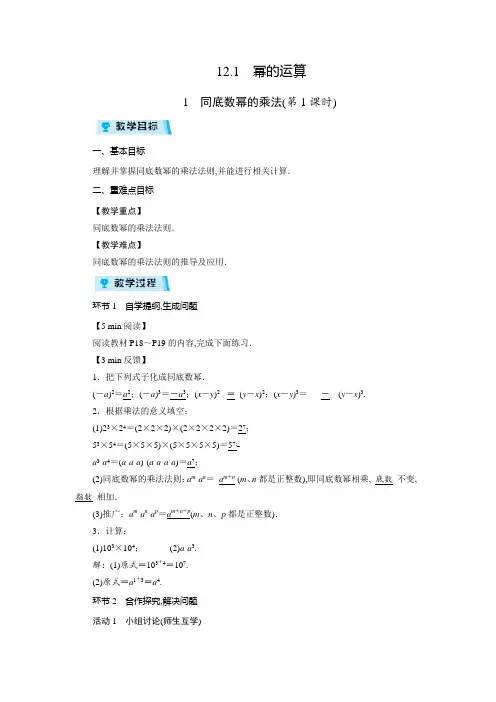 12.1 幂的运算
1 同底数幂的乘法(第1课时)
教学目标
一、基本目标
理解并掌握同底数幂的乘法法则,并能进行相关计算.
二、重难点目标
【教学重点】
同底数幂的乘法法则.
【教学难点】
同底数幂的乘法法则的推导及应用.
教学过程
环节1 自学提纲,生成问题
【5 min阅读】
阅读教材P18～P19的内容,完成下面练习.
【3 min反馈】
1.把下列式子化成同底数幂.
(-a)²=a²;(-a)³=-a³;(x-y)² = (y-x)²;(x-y)³= - (y-x)³.
2.根据乘法的意义填空:
(1)2³×2⁴=(2×2×2)×(2×2×2×2)=2⁷;
5³×5⁴=(5×5×5)×(5×5×5×5)=5⁷;
a³·a⁴=(a·a·a)·(a·a·a·a)=a⁷;
(2)同底数幂的乘法法则:aᵐ·aⁿ= aᵐ⁺ⁿ (m、n都是正整数),即同底数幂相乘, 底数 不变,
指数 相加.
(3)推广:aᵐ·aⁿ·aᵖ=aᵐ⁺ⁿ⁺ᵖ(m、n、p都是正整数).
3.计算:
(1)10³×10⁴; (2)a·a³.
解:(1)原式=10³⁺⁴=10⁷.
(2)原式=a¹⁺³=a⁴.
环节2 合作探究,解决问题
活动1 小组讨论(师生互学)